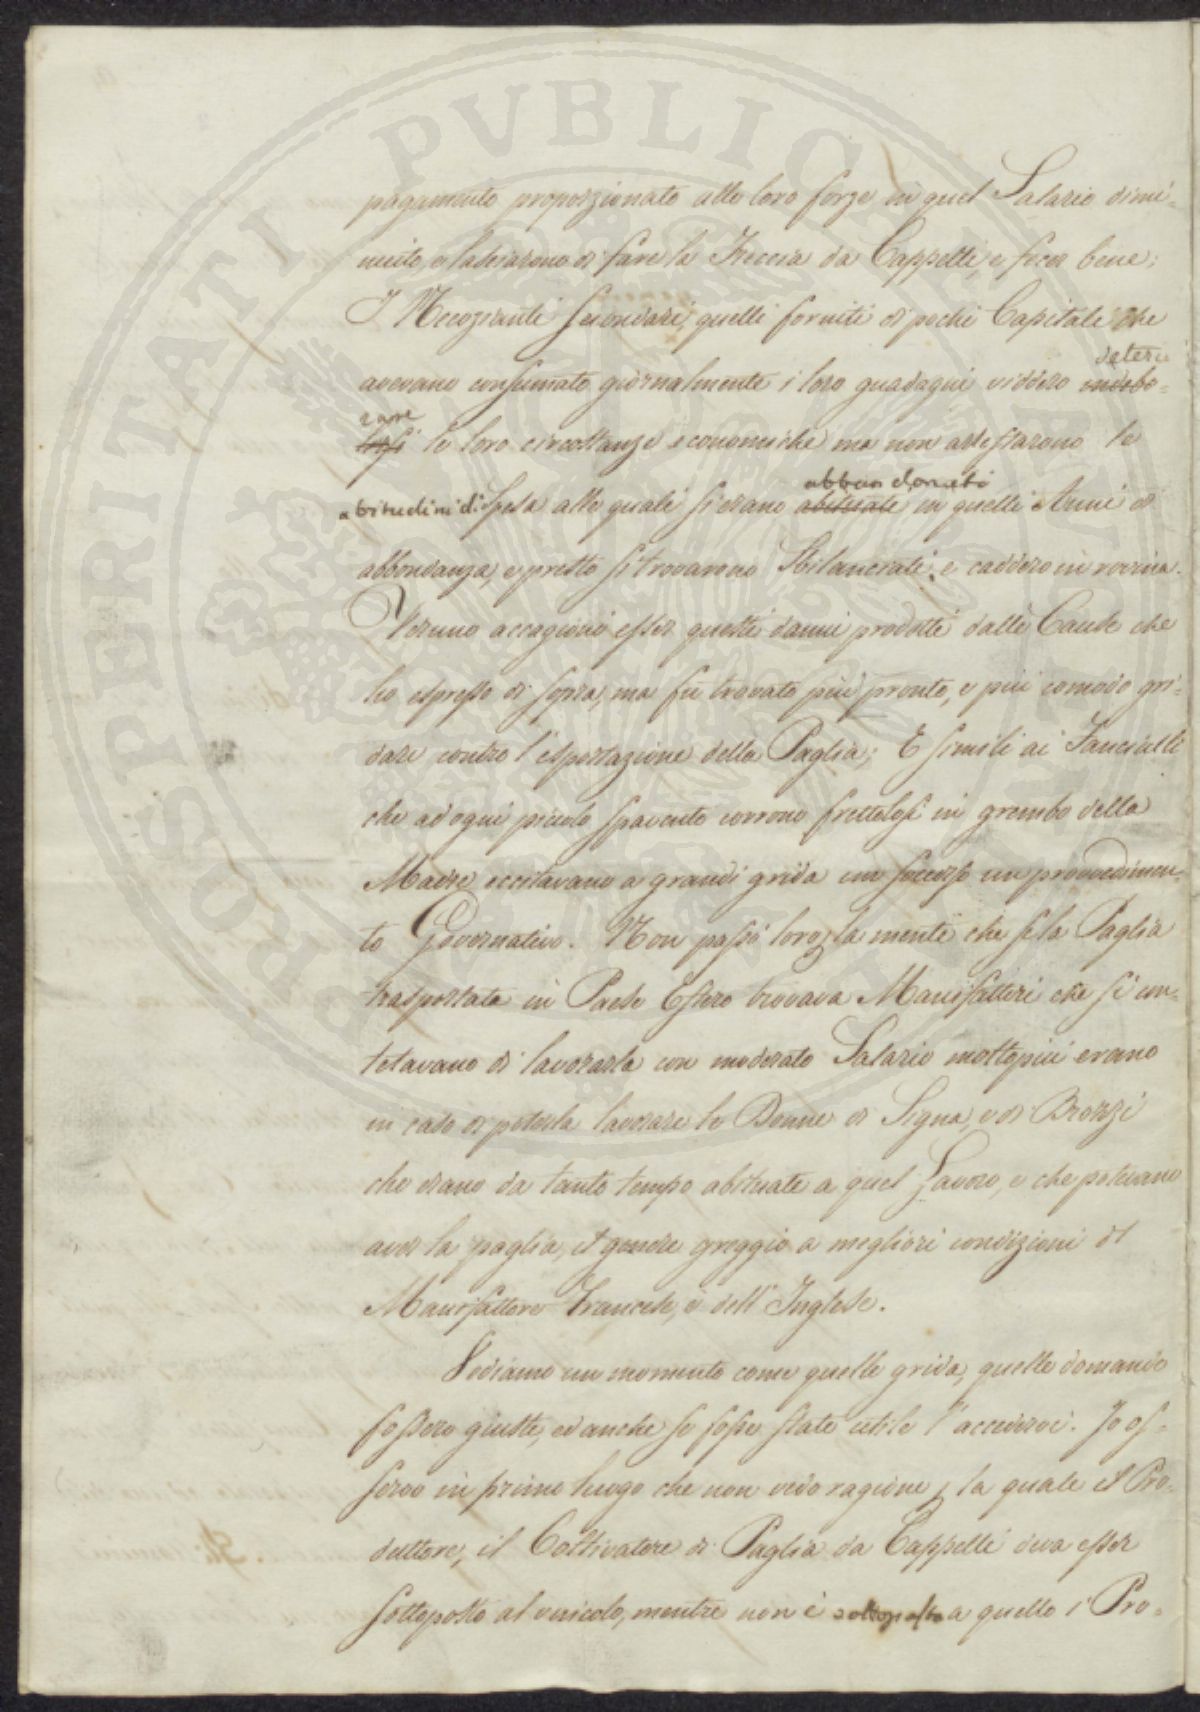 PROSPERITATI PUBLICAE AUGENDAE
pagamento proporzionato alle loro forze in quel Salario dimi-
nuito, e lasciarono di fare la Treccia da Cappelli, e fecer bene;
I Negozianti Secondari, quelli forniti di pochi Capitale che
deterio
avevano consumato giornalmente i loro guadagni viddero indebo-
rare
lirsi le loro circostanze economiche ma non arrestarono le
abbandonati
abitudini di Spesa alle quali si erano abituate in quelli Anni di
abbondanza, e presto si trovarono Sbilanciati, e caddero in rovina.
Veruno accagionò esser questi danni prodotti dalle Cause che
ho espresso di sopra, ma fu trovato più pronto, e più comodo gri-
dare contro l'esportazione della Paglia; E simili ai Fanciulli
che ad ogni piccolo spavento corrono frettolosi in grembo della
Madre eccitavano a grandi grida un soccorso un provvedimen-
to Governativo. Non passò loro la mente che se la Paglia
trasportata in Paese Estero trovava Manifattori che si con-
tetavano di lavorarla con moderato Salario molto più erano
in caso di poterla lavorare le Donne di Signa, e di Brozzi
che erano da tanto tempo abituate a quel Lavoro, e che potevano
aver la paglia, il genere greggio a migliori condizioni del
Manifattore Francese, e dell'Inglese.
Vediamo un momento come quelle grida, quelle domande
fossero giuste, ed anche se fosse stato utile l'accedervi. Io os-
servo in primo luogo che non vedo ragione per la quale il Pro-
duttore, il Coltivatore di Paglia da Cappelli deva esser
sottoposto al vincolo, mentre non è sottoposto a quello i Pro-